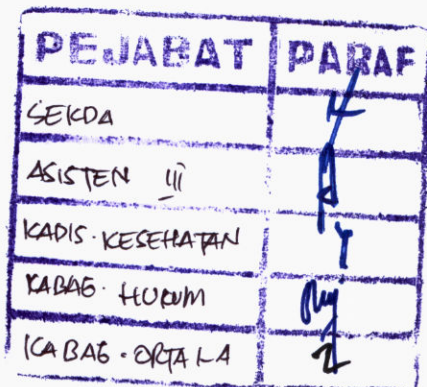 PEJABAT PARAF
SEKDA
ASISTEN III
KADIS. KESEHATAN
KABAG. HUKUM
KABAG. ORTALA